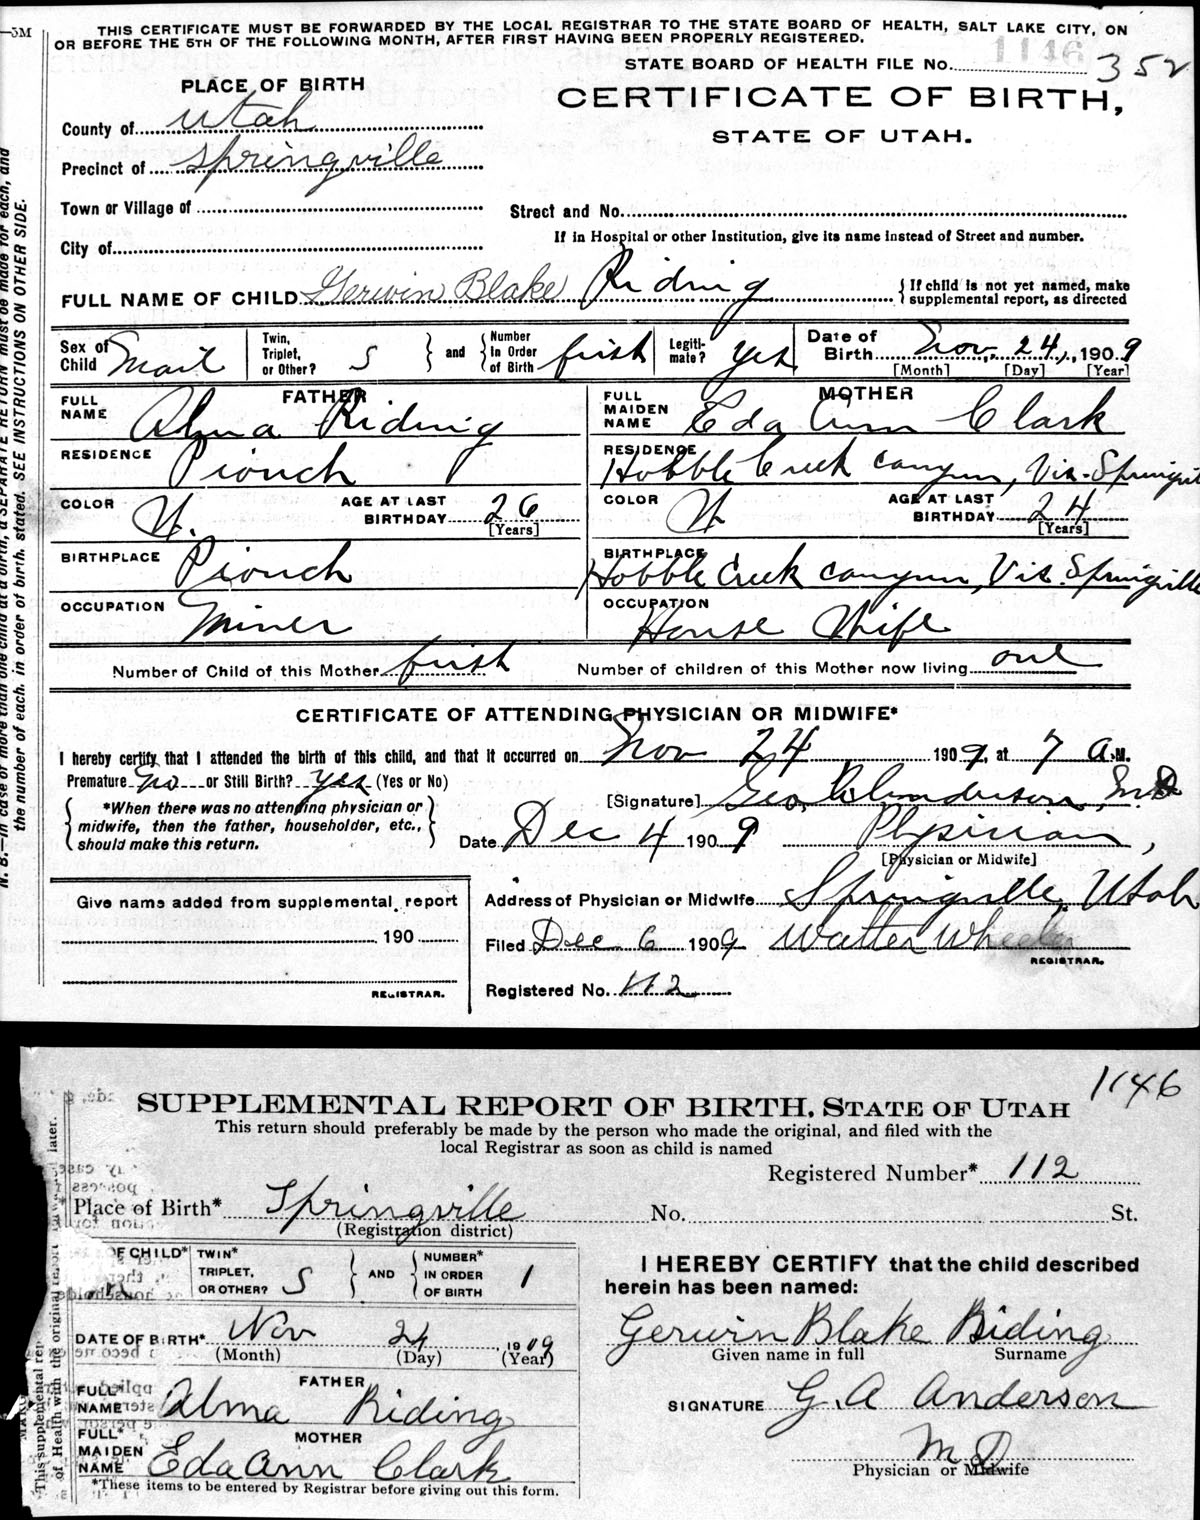 5M
THIS CERTIFICATE MUST BE FORWARDED BY THE LOCAL REGISTRAR TO THE STATE BOARD OF HEALTH, SALT LAKE CITY, ON
OR BEFORE THE 5TH OF THE FOLLOWING MONTH, AFTER FIRST HAVING BEEN PROPERLY REGISTERED.
1146
STATE BOARD OF HEALTH FILE No. 352
PLACE OF BIRTH
CERTIFICATE OF BIRTH,
STATE OF UTAH.
County of Utah
Precinct of Springville
Town or Village of
Street and No.
City of
If in Hospital or other Institution, give its name instead of Street and number.
FULL NAME OF CHILD Gerwin Blake Riding { If child is not yet named, make supplemental report, as directed
Sex of Child Mail Twin, Triplet, or Other? S } and { Number In Order of Birth first Legitimate? yes Date of Birth Nov. 24, 1909
[Month] [Day] [Year]
FATHER
MOTHER
FULL NAME Alma Riding
FULL MAIDEN NAME Eda Ann Clark
RESIDENCE Pionch
RESIDENCE Hobble Creek canyon, Via. Springvil
COLOR W. AGE AT LAST BIRTHDAY 26 [Years]
COLOR W AGE AT LAST BIRTHDAY 24 [Years]
BIRTHPLACE Pionch
BIRTHPLACE Hobble Creek canyon, Via. Springville
OCCUPATION Miner
OCCUPATION House Wife
Number of Child of this Mother first Number of children of this Mother now living one
CERTIFICATE OF ATTENDING PHYSICIAN OR MIDWIFE*
I hereby certify that I attended the birth of this child, and that it occurred on Nov 24 1909, at 7 A.M.
Premature No or Still Birth? Yes (Yes or No)
{ *When there was no attending physician or midwife, then the father, householder, etc., should make this return. }
[Signature] Geo. A Anderson, M.D
Date Dec 4 1909 Physician,
[Physician or Midwife]
Give name added from supplemental report
190
REGISTRAR.
Address of Physician or Midwife Springville, Utah
Filed Dec 6 1909 Walter Wheeler
REGISTRAR.
Registered No. 112
N. B.—In case of more than one child at a birth, a SEPARATE RETURN must be made for each, and
the number of each, in order of birth, stated. SEE INSTRUCTIONS ON OTHER SIDE.
1146
SUPPLEMENTAL REPORT OF BIRTH, STATE OF UTAH
This return should preferably be made by the person who made the original, and filed with the
local Registrar as soon as child is named
Registered Number* 112
Place of Birth* Springville No. St.
(Registration district)
OF CHILD* TWIN* TRIPLET, OR OTHER? S } AND { NUMBER* IN ORDER OF BIRTH 1
DATE OF BIRTH* Nov 24 1909
(Month) (Day) (Year)
FATHER
FULL* NAME Alma Riding
MOTHER
FULL* MAIDEN NAME Eda Ann Clark
*These items to be entered by Registrar before giving out this form.
I HEREBY CERTIFY that the child described
herein has been named:
Gerwin Blake Riding
Given name in full Surname
SIGNATURE G. A Anderson
M D
Physician or Midwife
This supplemental rep
of Health with the original report later.